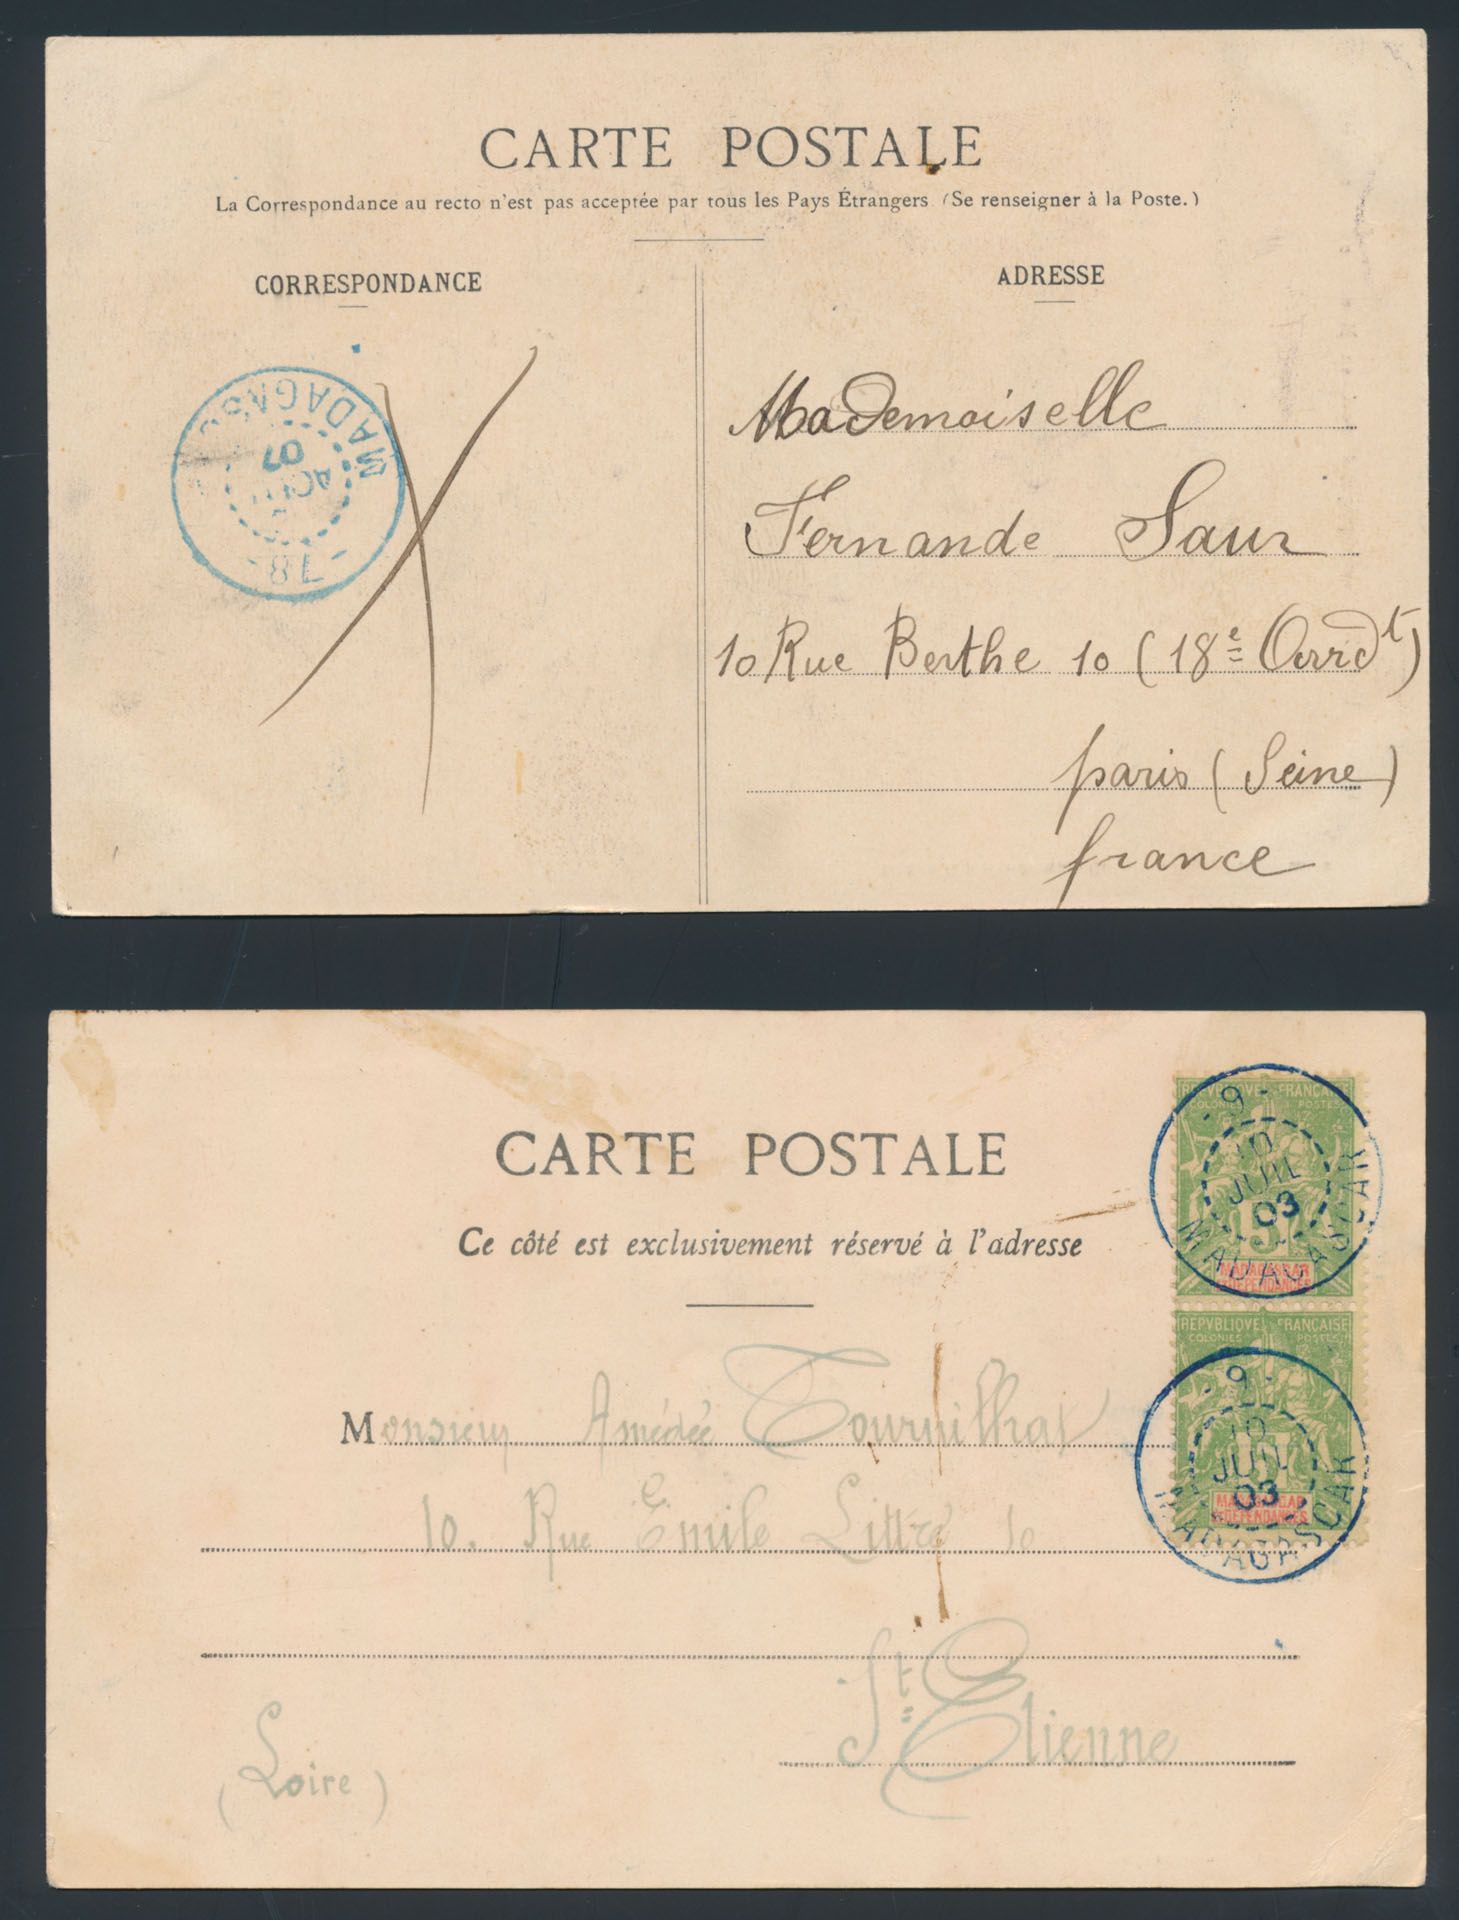 CARTE POSTALE
La Correspondance au recto n'est pas acceptée par tous les Pays Étrangers (Se renseigner à la Poste.)
CORRESPONDANCE
ADRESSE
MADAGASC
07
-78-
Mademoiselle
Fernande Saur
10 Rue Berthe 10 (18e Arrdt)
paris (Seine)
france
CARTE POSTALE
Ce côté est exclusivement réservé à l'adresse
REPVBLIQVE FRANÇAISE
COLONIES POSTES
MADAGASCAR
DÉPENDANCES
-9-
10
JUIL
03
MADAGASCAR
REPVBLIQVE FRANÇAISE
COLONIES POSTES
MADAGASCAR
DÉPENDANCES
-9-
10
JUIL
03
MADAGASCAR
Monsieur Amédée Tournilhac
10. Rue Emile Littré 10
St Etienne
(Loire)